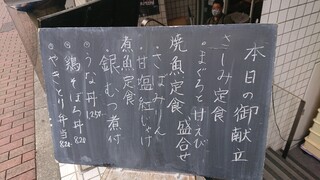 本日の御献立
さしみ定食
・まぐろと甘えび
焼魚定食 盛合せ
・さばみりん
・甘塩紅しゃけ
煮魚定食
・銀むつ煮付
・うな丼 1,250
・鶏そぼろ丼 820
・やきとり弁当 820